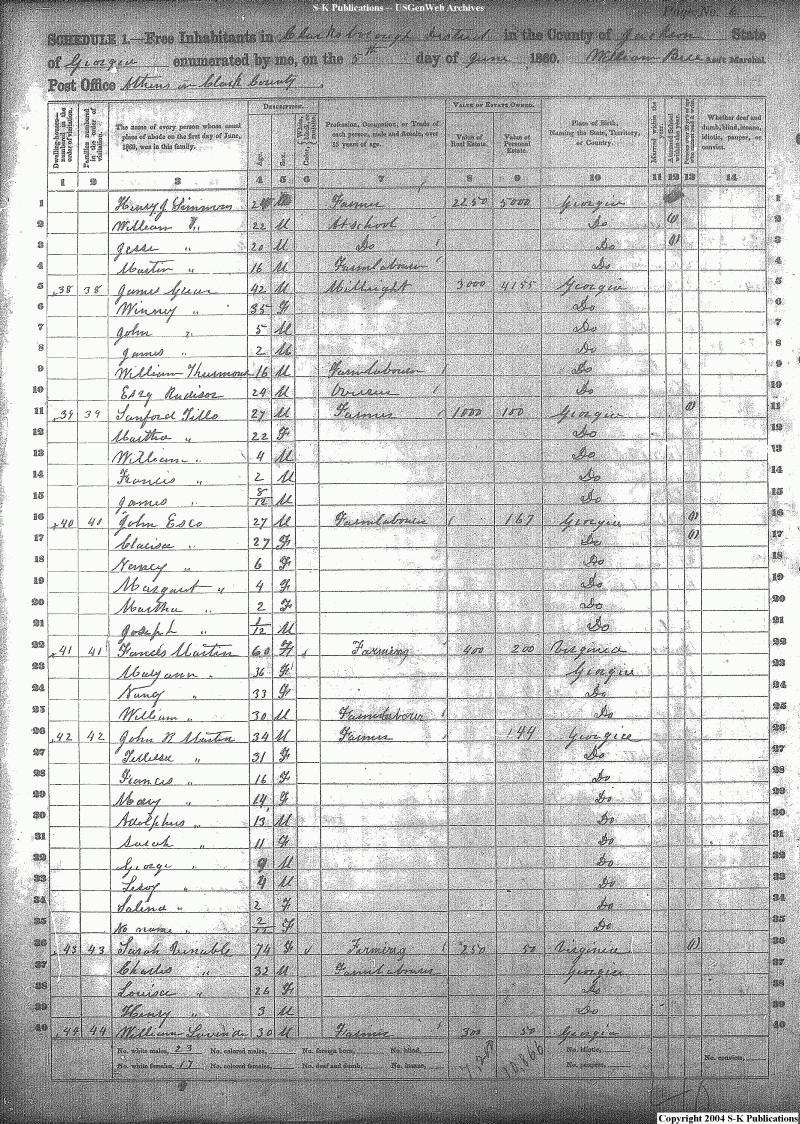 S-K Publications -- USGenWeb Archives
Page No. 6
SCHEDULE 1.—Free Inhabitants in Clarksborough District in the County of Jackson State
of Georgia enumerated by me, on the 5th day of June 1860. William Bell Ass't Marshal
Post Office Athens in Clark County
DESCRIPTION. VALUE OF ESTATE OWNED.
Dwelling-houses—numbered in the order of visitation.
Families numbered in the order of visitation.
The name of every person whose usual place of abode on the first day of June, 1860, was in this family.
Age.
Sex.
Color, White, black, or mulatto.
Profession, Occupation, or Trade of each person, male and female, over 15 years of age.
Value of Real Estate.
Value of Personal Estate.
Place of Birth, Naming the State, Territory, or Country.
Married within the year.
Attended School within the year.
Whether deaf and dumb, blind, insane, idiotic, pauper, or convict.
1 2 3 4 5 6 7 8 9 10 11 12 13 14
1 Henry J Simmons Farmer 2250 5000 Georgia 1
2 William " 22 M At school Do (1) 2
3 Jesse " 20 M Do Do (1) 3
4 Martin " 16 M Farmlabourer Do 4
5 38 38 James 42 M Millright 3000 4155 Georgia 5
6 Winney " 35 F Do 6
7 John " 5 M Do 7
8 James " 2 M Do 8
9 William Thurmond 16 M Farmlabourer Do 9
10 24 M Do 10
11 39 39 Sanford 27 M Farmer 1000 100 Georgia (1) 11
12 Martha " 22 F Do 12
13 William " 4 M Do 13
14 Francis " 2 M Do 14
15 James " 8/12 M Do 15
16 40 40 John Esco 27 M Farmlabourer 167 Georgia (1) 16
17 " 27 F Do (1) 17
18 Nancy " 6 F Do 18
19 Margaret " 4 F Do 19
20 Martha " 2 F Do 20
21 Joseph " 1/12 M Do 21
22 41 41 Frances Martin 60 F Farming 400 200 Virginia 22
23 Maryann " 36 F Georgia 23
24 Nancy " 33 F Do 24
25 William " 30 M Farmlabourer Do 25
26 42 42 John R Martin 34 M Farmer 144 Georgia 26
27 " 31 F Do 27
28 Francis " 16 F Do 28
29 Mary " 14 F Do 29
30 Adolphus " 13 M Do 30
31 Sarah " 11 F Do 31
32 George " 9 M Do 32
33 Leroy " 4 M Do 33
34 Salena " 2 F Do 34
35 No name " 2/12 F Do 35
36 43 43 Sarah Venable 74 F Farming 250 50 Virginia (1) 36
37 Charles " 33 M Farmlabourer Georgia 37
38 Louisa " 26 F Do 38
39 Henry " 3 M Do 39
40 44 44 William 30 M Farmer 300 50 Georgia 40
No. white males, 23 No. colored males, No. foreign born, No. blind, No. idiotic,
No. white females, 17 No. colored females, No. deaf and dumb, No. insane, No. paupers, No. convicts,
10,866
Copyright 2004 S-K Publications